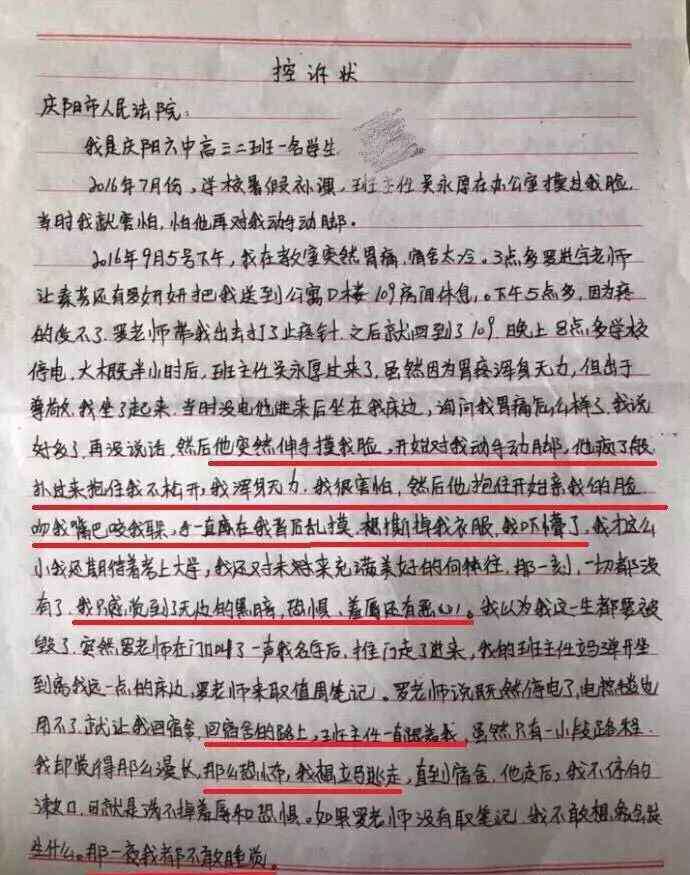 控诉状
庆阳市人民法院:
我是庆阳六中高三二班一名学生
2016年7月份,学校暑假补课,班主任吴永厚在办公室摸过我脸,
当时我就害怕,怕他再对我动手动脚。
2016年9月5号下午,我在教室突然胃痛,宿舍太冷。3点多罗进宇老师
让素芳还有罗妍妍把我送到公寓D楼109房间休息。下午5点多,因为疼
的受不了,罗老师带我出去打了止疼针,之后就回到了109.晚上8点多学校
停电,大概半小时后,班主任吴永厚过来了,虽然因为胃疼浑身无力,但出于
尊敬,我坐了起来.当时没电他进来后坐在我床边,询问我胃痛怎么样了,我说
好多了,再没说话,然后他突然伸手摸我脸,开始对我动手动脚,他疯了般
扑过来抱住我不松开,我浑身无力,我很害怕,然后他抱住开始亲我的脸
吻我嘴巴咬我耳朵,手一直在我背后乱摸,想撕掉我衣服,我吓懵了,我才这么
小我还期待着考上大学,我还对未来充满美好的向往,那一刻,一切都没
有了,我只感觉到了无边的黑暗,恐惧、羞辱还有恶心!我以为我这一生都要被
毁了,突然罗老师在门口叫了一声我名字后,推门走了进来,我的班主任立马弹开坐
到离我远一点的床边,罗老师来取值周笔记。罗老师说既然停电了,电热毯也
用不了,就让我回宿舍,回宿舍的路上,班主任一直跟着我,虽然只有一小段路程.
我却觉得那么漫长,那么恐怖,我想立马逃走,直到宿舍,他走后,我不停的
漱口,可就是洗不掉羞辱和恐惧。如果罗老师没有取笔记,我不敢想我会发
生什么。那一夜我都不敢睡觉。